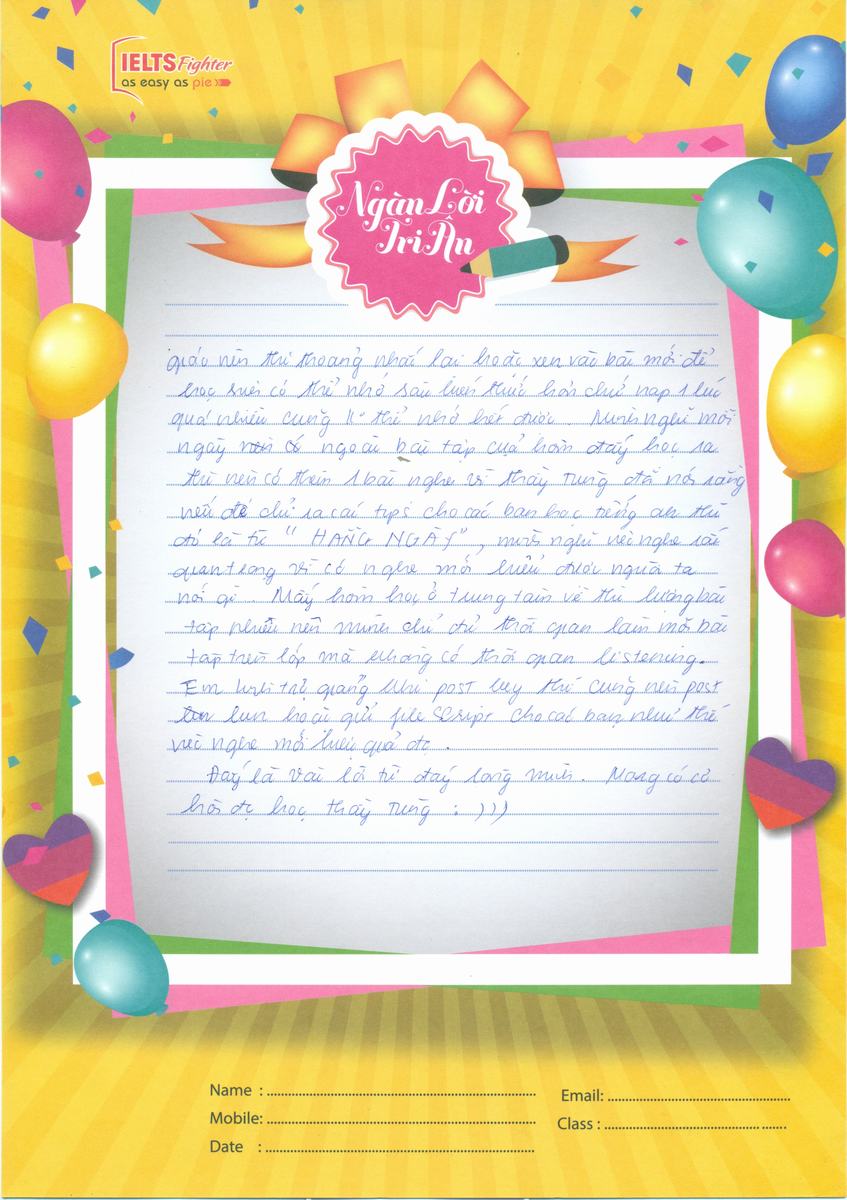 IELTS Fighter
as easy as pie
Ngàn Lời
Tri Ân
giáo nên thi thoảng nhắc lại hoặc xen vào bài mới để
học sinh có thể nhớ sâu kiến thức hơn chứ nạp 1 lúc
quá nhiều cũng k° thể nhớ hết được. Mình nghĩ mỗi
ngày ngoài bài tập của hôm đấy học ra
thì nên có thêm 1 bài nghe vì thầy Tùng đã nói rằng
nếu để chỉ ra cái tips cho các bạn học tiếng anh thì
đó là từ " HẰNG NGÀY", mình nghĩ việc nghe rất
quan trọng vì có nghe mới hiểu được người ta
nói gì. Mấy hôm học ở trung tâm về thì lượng bài
tập nhiều nên mình chỉ đủ thời gian làm mỗi bài
tập trên lớp mà không có thời gian listening.
Em trợ giảng khi post key thì cũng nên post
lun hoặc gửi file script cho các bạn như thế
việc nghe mới hiệu quả đc.
Đấy là vài lời từ đáy lòng mình. Mong có cơ
hội đc học thầy Tùng : )))
Name :
Email:
Mobile:
Class :
Date :